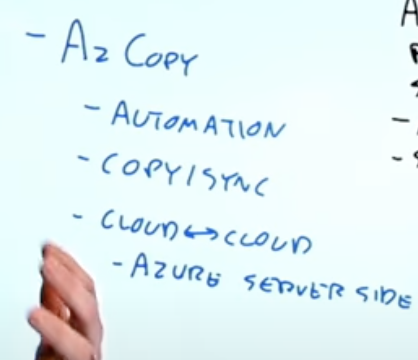 - Az COPY
- AUTOMATION
- COPY/SYNC
- CLOUD↔CLOUD
- AZURE SERVER SIDE